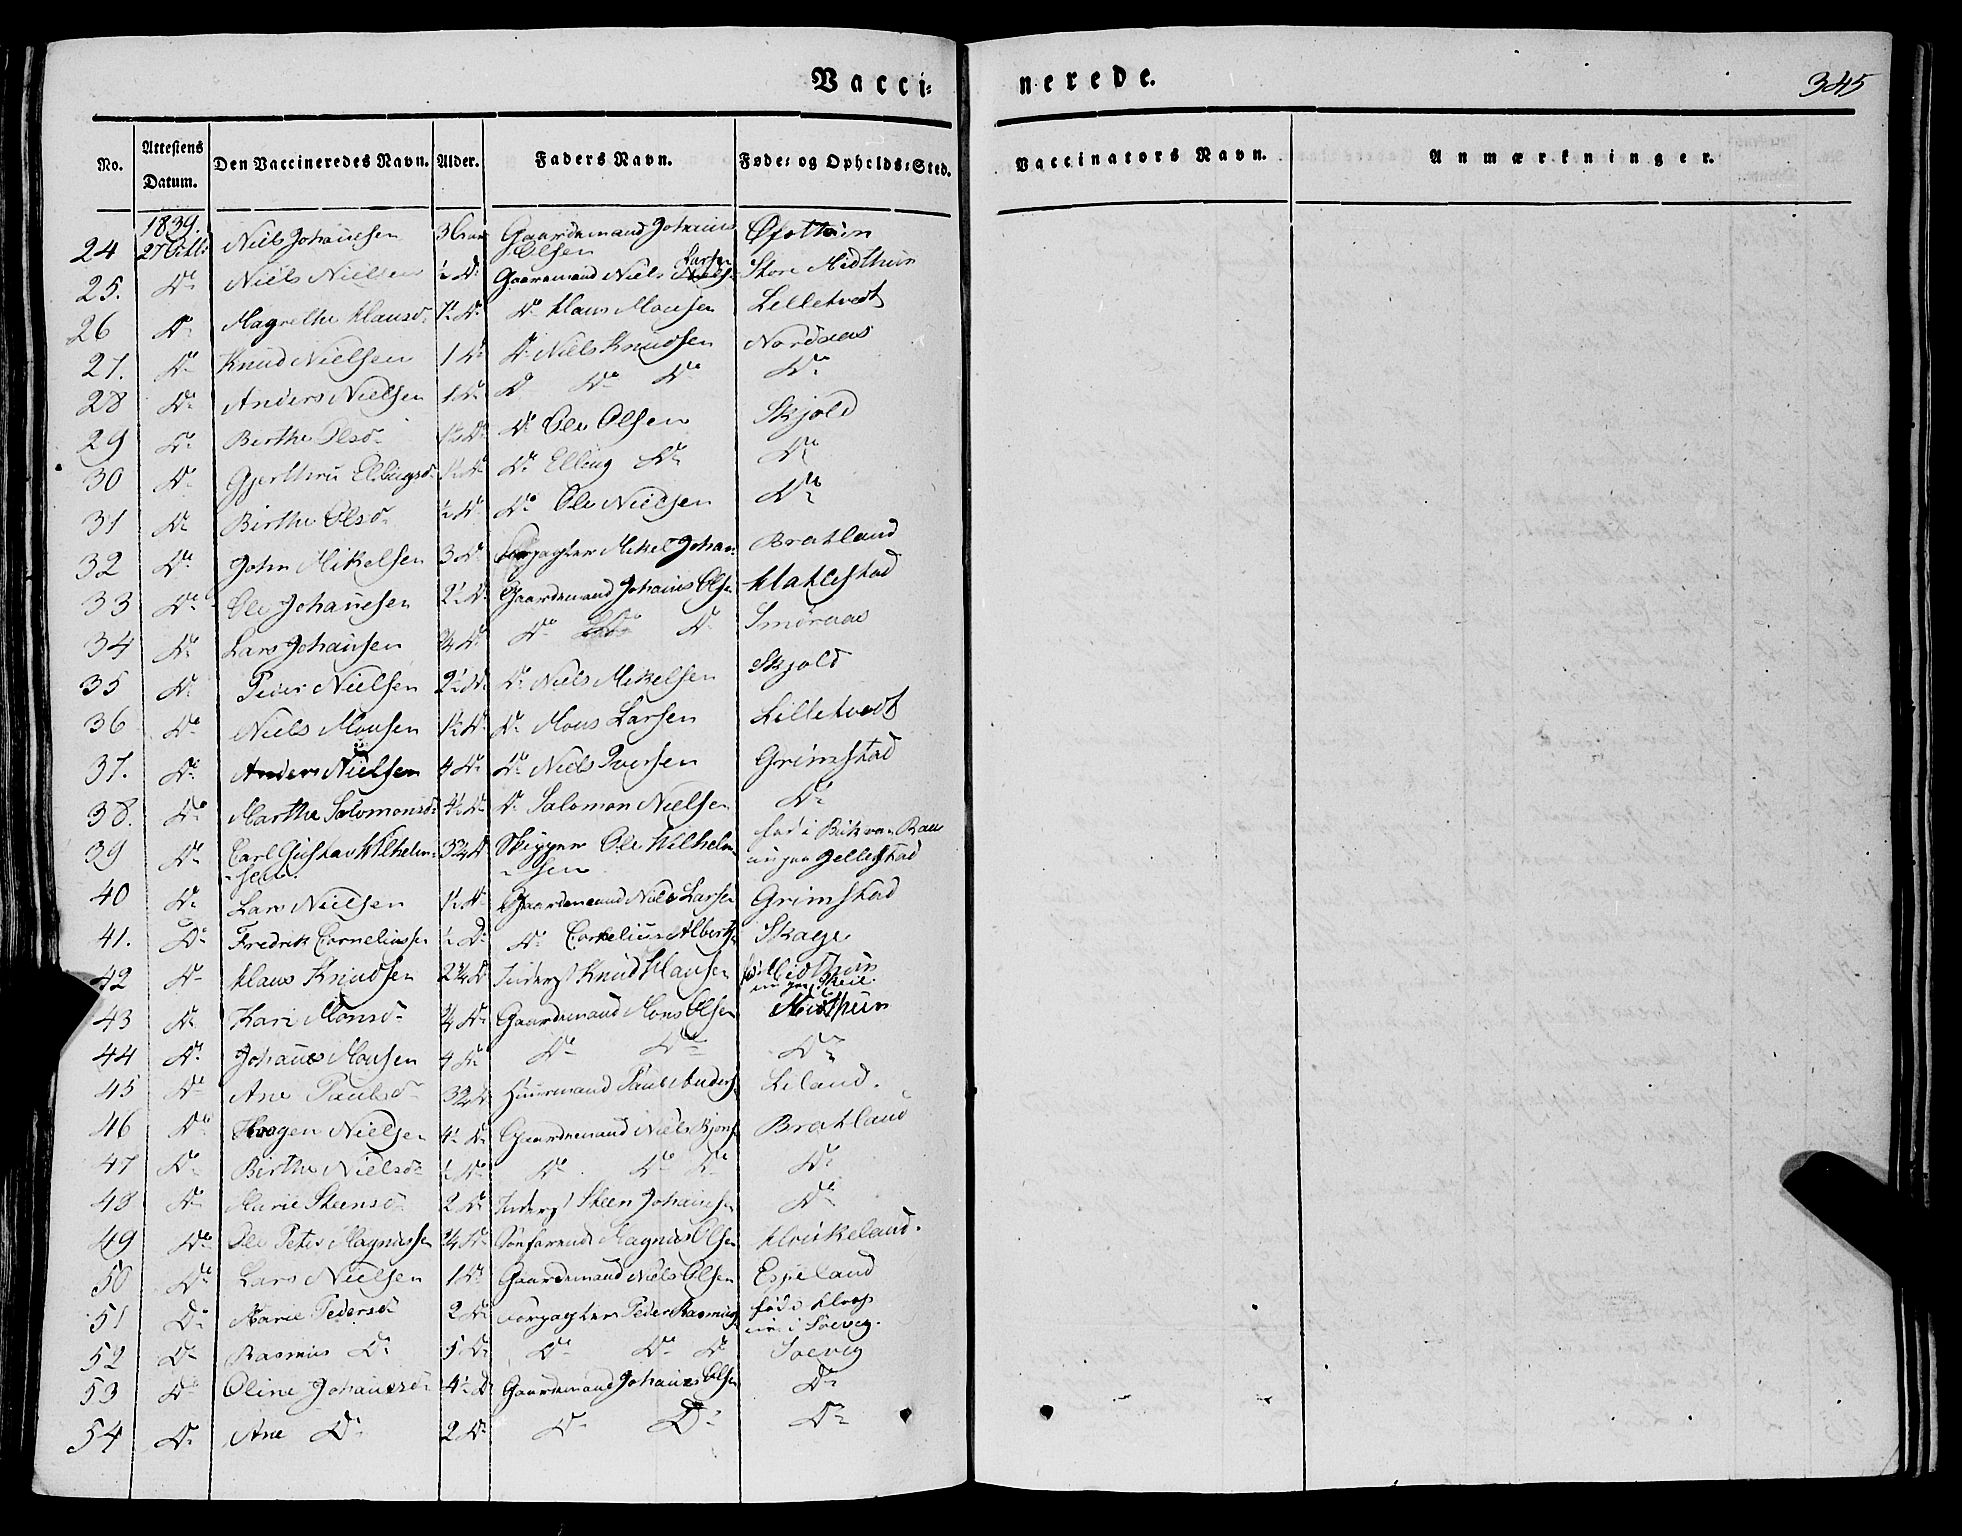 Vacci-
nerede.
345
No. Attestens Datum. Den Vaccineredes Navn. Alder. Faders Navn. Føde- og Opholds-Sted. Vaccinators Navn. Anmærkninger.
1839.
24 27 Niels Johannesen 3 Gaardmand Johannes Olsen
25. Do Niels Nielsen ½ Do Gaardmand Niels Larsen Store Midthun
26 Do Magrethe Klausd. 1½ Do Do Klaus Monsen Lilletvedt
27. Do Knud Nielsen 1 Do Do Niels Knudsen Nordaas
28 Do Anders Nielsen 1 Do Do Do Do Do
29 Do Berthe Olsd. 1½ Do Do Ole Olsen Skjold
30 Do Gjerthru Ellingsd. 1½ Do Do Elling Do Do
31 Do Birthe Olsd. ½ Do Do Ole Nielsen Do
32 Do John Mikelsen 3 Do Forpagter Mikel Johan: Bratland
33 Do Ole Johannesen 2½ Do Gaardemand Johannes Olsen
34 Do Lars Johansen ¾ Do Do Do Smøraas
35 Do Peder Nielsen 2½ Do Do Niels Mikelsen Skjold
36 Do Niels Monsen 1½ Do Do Mons Larsen Lilletvedt
37. Do Anders Nielsen 4 Do Do Niels Iversen Grimstad
38. Do Marthe Salomonsd. 4½ Do Do Salomon Nielsen Do
39 Do Carl Gustav Wilhelm-
sen 3¾ Do Skipper Ole Wilhelm-
sen fød i
nu paa Jellestad
40 Do Lars Nielsen 1½ Do Gaardemand Niels Larsen Grimstad
41. Do Fredrik Corneliussen ½ Do Do Cornelius Alberts: Skage
42 Do Klaus Knudsen 2¼ Do Inderst Knud Klausen f. i Midthun
nu paa Skeie.
43 Do Kari Monsd. ¾ Do Gaardemand Mons Olsen Midthun
44 Do Johannes Monsen 4 Do Do Do Do
45 Do Ane Paulsd. 3¾ Do Huusmand Paul Anders: Liland.
46 Do Haagen Nielsen 4½ Do Gaardemand Niels Bratland
47 Do Berthe Nielsd. ½ Do Do Do Do Do
48 Do Marie Steensd. 2 Do Inderst Steen Johannesen Do
49 Do Ole Peter Magnussen ¾ Do Søefarende Magnus Olsen
50 Do Lars Nielsen 1 Do Gaardemand Niels Olsen Espeland
51 Do Marie Pedersd. 2 Do Forpagter Peder Rasmus: fød i
nu i Søevig.
52 Do Rasmus Do 5 Do Do Do Do Søevig
53 Do Oline Johannesd. 4½ Do Gaardemand Johannes Olsen Do
54 Do Ane Do 2 Do Do Do Do